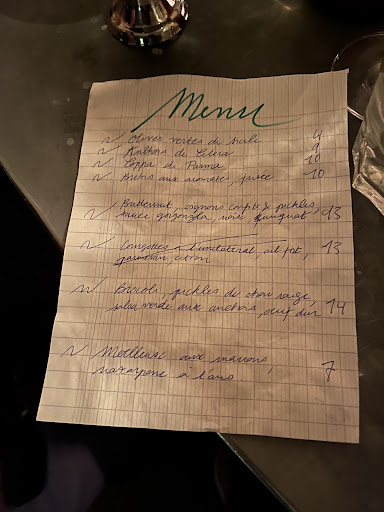 Menu
Olives vertes de Sicile 4
Anchois de Cetara 9
Coppa de Parma 10
aux tomates, 10
Butternut, oignons confits & pickles,
sauce gorgonzola, noix, kumquat 13
Courgettes à l'unilatéral, ail frit, 13
parmesan, citron
Brocoli, pickles de chou rouge,
salsa verde aux anchois, oeuf dur 14
Moelleux aux marrons,
mascarpone à l'anis 7